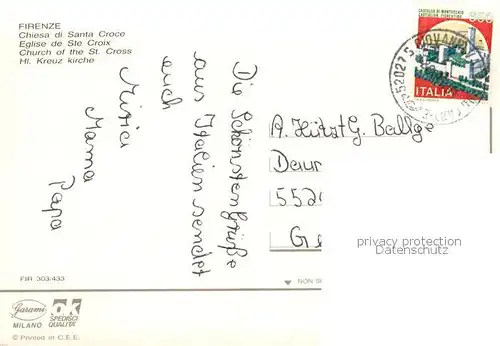 FIRENZE
Chiesa di Santa Croce
Eglise de Ste Croix
Church of the St. Cross
Hl. Kreuz kirche
850
CASTELLO DI MONTECCHIO
CASTIGLION FIORENTINO
ITALIA
52027 S. GIOVANNI
Die Schönsten Grüße
aus Italien sendet
euch
Mama
Papa
A. Hützt G. Ballge
Daun
552
Ge
privacy protection
Datenschutz
FIR 303/433
NON SC
Garami
MILANO
ok
SPEDISCI
QUALITA'
© Printed in C.E.E.